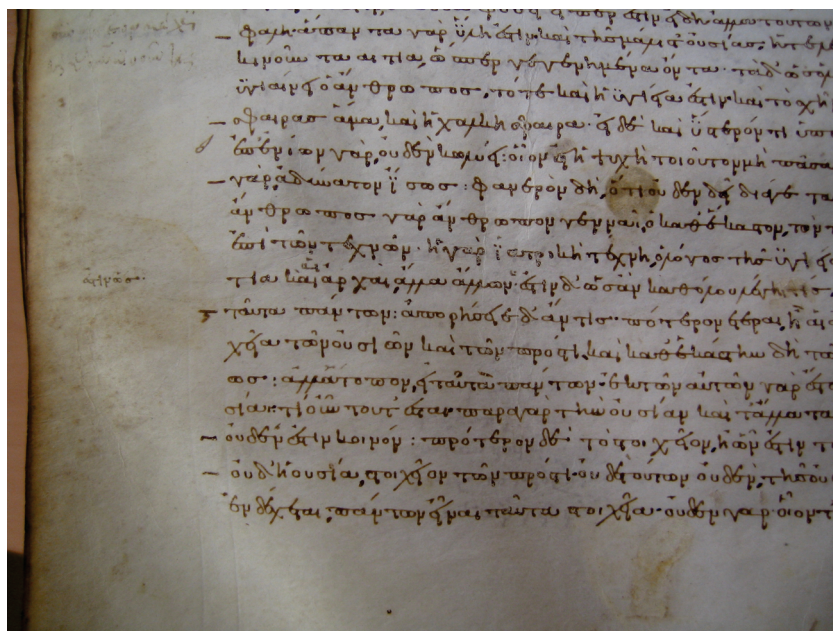 φαλή· ἅπαντα γὰρ ὕλη ἐστὶν καὶ τῆς μάλιστ' οὐσίας, ἡ τελ
κινοῦντα αἴτια, ὥσπερ γεγενημένα ὄντα· τὰ δ' ὡς ὁ λό
ὑγιαίνει ὁ ἄνθρωπος, τότε καὶ ἡ ὑγίεια ἐστὶν καὶ τὸ σχῆ
σφαίρας ἅμα, καὶ ἡ χαλκῆ σφαῖρα· εἰ δὲ καὶ ὕστερόν τι ὑπο
ἐπ' ἐνίων γὰρ, οὐδὲν κωλύει· οἷον εἰ ἡ ψυχὴ τοιοῦτον μὴ πᾶσα
γὰρ, ἀδύνατον ἴσως: φανερὸν δὴ, ὅτι οὐδὲν δεῖ διά γε τα
ἄνθρωπος γὰρ ἄνθρωπον γεννᾷ, ὁ καθ' ἕκαστον, τὸν τ
ἐπὶ τῶν τεχνῶν· ἡ γὰρ ἰατρικὴ τέχνη, ὁ λόγος τῆς ὑγιεί
τια καὶ αἱ ἀρχαὶ, ἄλλα ἄλλων· ἔστιν δ' ὡς ἂν καθόλου λέγῃ τις,
ταὐτὰ πάντων: ἀπορήσειε δ' ἄν τις πότερον ἕτεραι, ἢ αἱ
χεῖα τῶν οὐσιῶν καὶ τῶν πρός τι, καὶ καθ' ἑκάστην δὴ τῶ
ως: ἀλλ' ἄτοπον, εἰ ταὐτὰ πάντων· ἐκ τῶν αὐτῶν γὰρ ἔστ
σία· τί οὖν τοῦτ' ἔσται· παρὰ γὰρ τὴν οὐσίαν καὶ τἄλλα τὰ
οὐδέν ἐστιν κοινόν: πρότερον δὲ τὸ στοιχεῖον, ἢ ὧν ἐστὶν
οὐδ' ἡ οὐσία, στοιχεῖον τῶν πρός τι· οὐδὲ τούτων οὐδὲν, τῆς οὐ
ἐνδέχεται, πάντων εἶναι ταὐτὰ στοιχεῖα· οὐδὲν γὰρ οἷόν τ